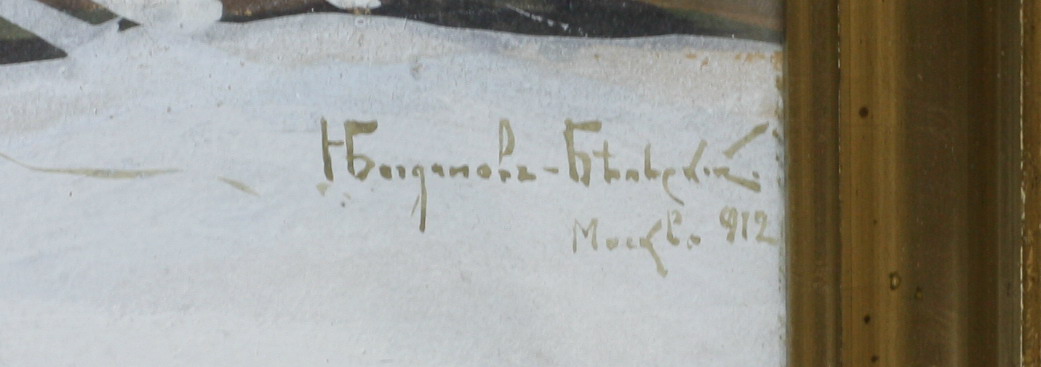 НБогдановъ-Бѣльскій.
Москва. 912